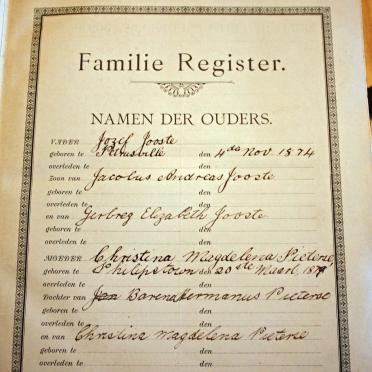 Familie Register.
NAMEN DER OUDERS.
VADER Jozef Jooste
geboren te Petrusville den 4de Nov. 1874
overleden te den
Zoon van Jacobus Andreas Jooste
geboren te den
overleden te den
en van Gerbreg Elizabeth Jooste
geboren te den
overleden te den
MOEDER Christina Magdelena Pieterse
geboren te Philipstown den 20ste Maart
overleden te den
Dochter van Jan Barend Hermanus Pieterse
geboren te den
overleden te den
en van Christina Magdelena Pieterse
geboren te den
overleden te den